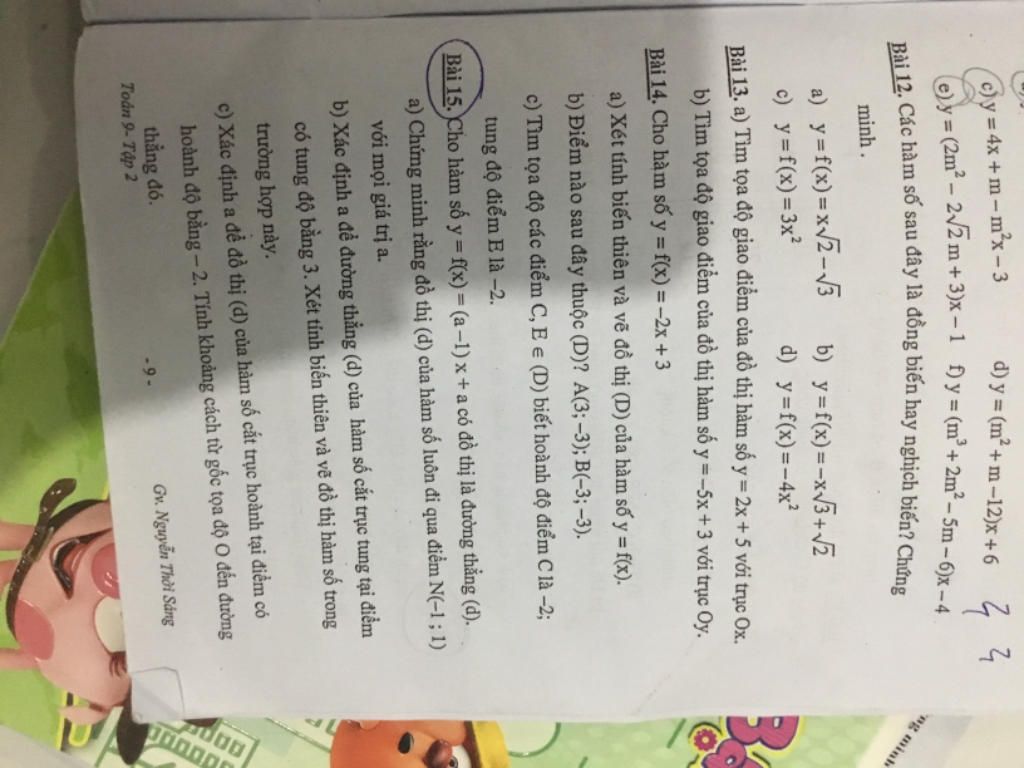 c) y = 4x + m – m²x – 3 d) y = (m² + m –12)x + 6
e) y = (2m² – 2√2 m + 3)x – 1 f) y = (m³ + 2m² – 5m – 6)x – 4
Bài 12. Các hàm số sau đây là đồng biến hay nghịch biến? Chứng
minh .
a) y = f(x) = x√2 – √3 b) y = f(x) = –x√3 + √2
c) y = f(x) = 3x² d) y = f(x) = –4x²
Bài 13. a) Tìm tọa độ giao điểm của đồ thị hàm số y = 2x + 5 với trục Ox.
b) Tìm tọa độ giao điểm của đồ thị hàm số y = –5x + 3 với trục Oy.
Bài 14. Cho hàm số y = f(x) = –2x + 3
a) Xét tính biến thiên và vẽ đồ thị (D) của hàm số y = f(x).
b) Điểm nào sau đây thuộc (D)? A(3; –3); B(–3; –3).
c) Tìm tọa độ các điểm C, E ∈ (D) biết hoành độ điểm C là –2;
tung độ điểm E là –2.
Bài 15. Cho hàm số y = f(x) = (a –1) x + a có đồ thị là đường thẳng (d).
a) Chứng minh rằng đồ thị (d) của hàm số luôn đi qua điểm N(–1 ; 1)
với mọi giá trị a.
b) Xác định a để đường thẳng (d) của hàm số cắt trục tung tại điểm
có tung độ bằng 3. Xét tính biến thiên và vẽ đồ thị hàm số trong
trường hợp này.
c) Xác định a để đồ thị (d) của hàm số cắt trục hoành tại điểm có
hoành độ bằng – 2. Tính khoảng cách từ gốc tọa độ O đến đường
thẳng đó.
Toán 9- Tập 2 - 9 - Gv. Nguyễn Thời Sáng